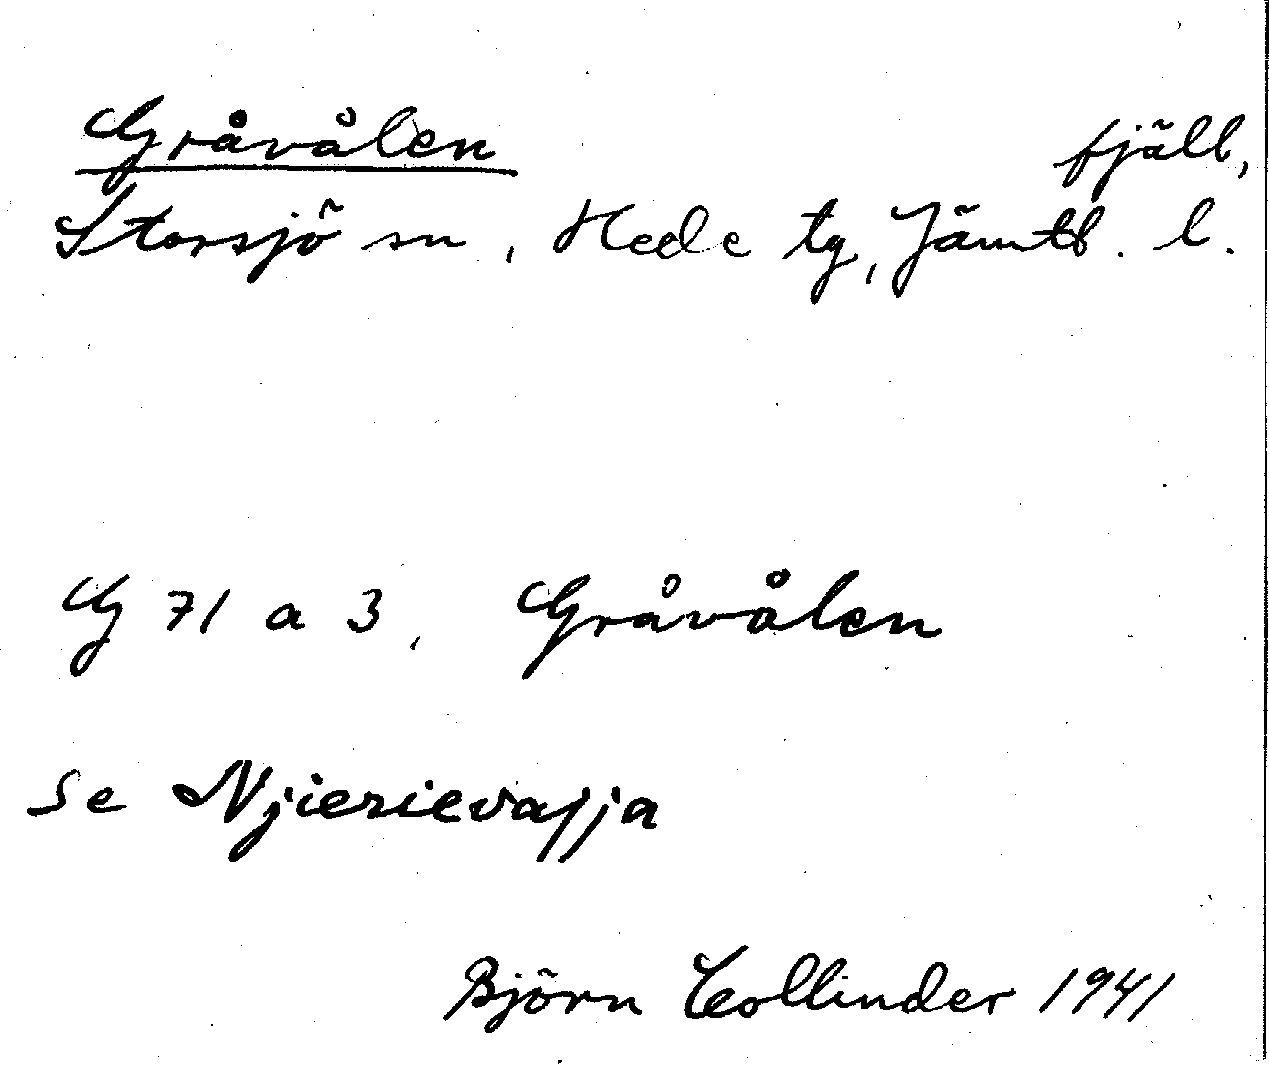 Gråvålen fjäll,
Storsjö sn, Hede tg, Jämtl. l.
G 71 a 3, Gråvålen
se Njierievajja
Björn Collinder 1941